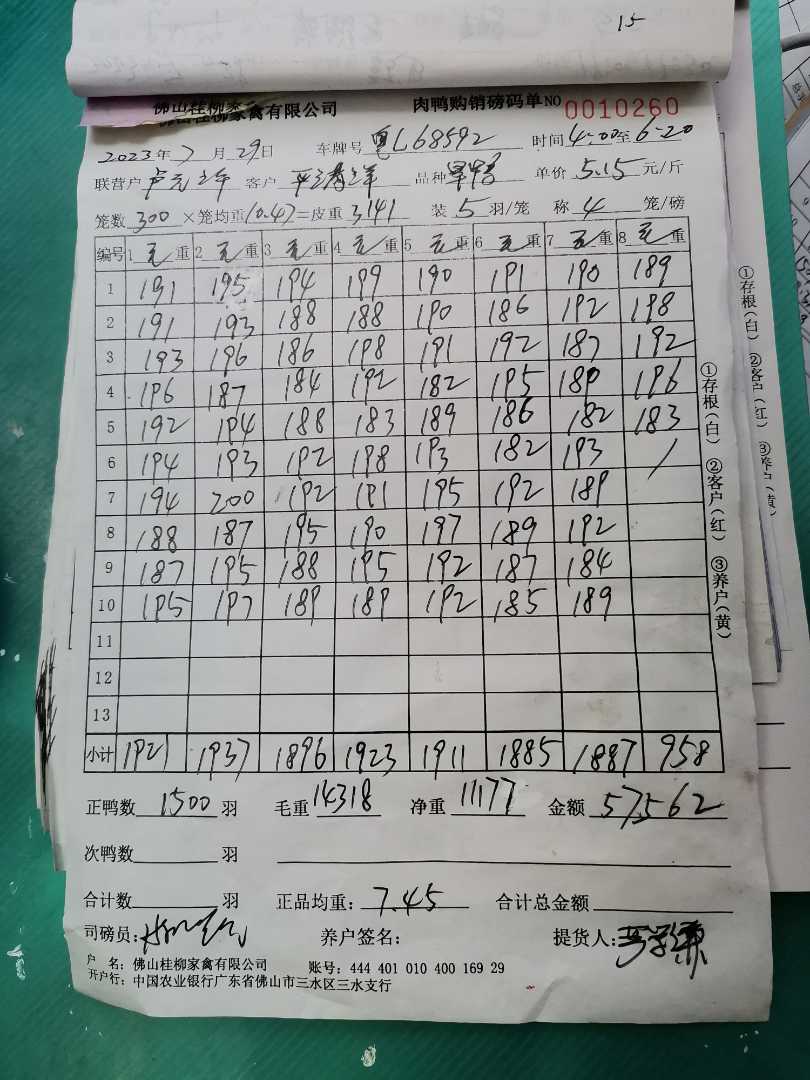 15
佛山桂柳家禽有限公司 肉鸭购销磅码单NO 0010260
2023年7月29日 车牌号 粤L68592 时间4:00至6:20
联营户 客户 品种 单价5.15元/斤
笼数300×笼均重(0.47)=皮重3141 装5羽/笼 称4笼/磅
编号 1毛重 2毛重 3毛重 4毛重 5毛重 6毛重 7毛重 8毛重
1 191 195 194 199 190 191 190 189
2 191 193 188 188 190 186 192 198
3 193 196 186 198 191 192 187 192
4 196 187 184 192 182 195 189 196
5 192 194 188 183 189 186 182 183
6 194 193 192 198 193 182 193 /
7 194 200 192 191 195 192 189
8 188 187 195 190 197 189 192
9 187 195 188 195 192 187 184
10 195 197 189 189 192 185 189
11
12
13
小计 1921 1937 1896 1923 1911 1885 1887 958
正鸭数1500羽 毛重14318 净重11177 金额57562
次鸭数 羽
合计数 羽 正品均重:7.45 合计总金额
司磅员: 养户签名: 提货人:
户 名:佛山桂柳家禽有限公司 账号:444 401 010 400 169 29
开户行:中国农业银行广东省佛山市三水区三水支行
①存根(白) ②客户(红) ③养户(黄)
①存根(白) ②客户(红) ③养户(黄)